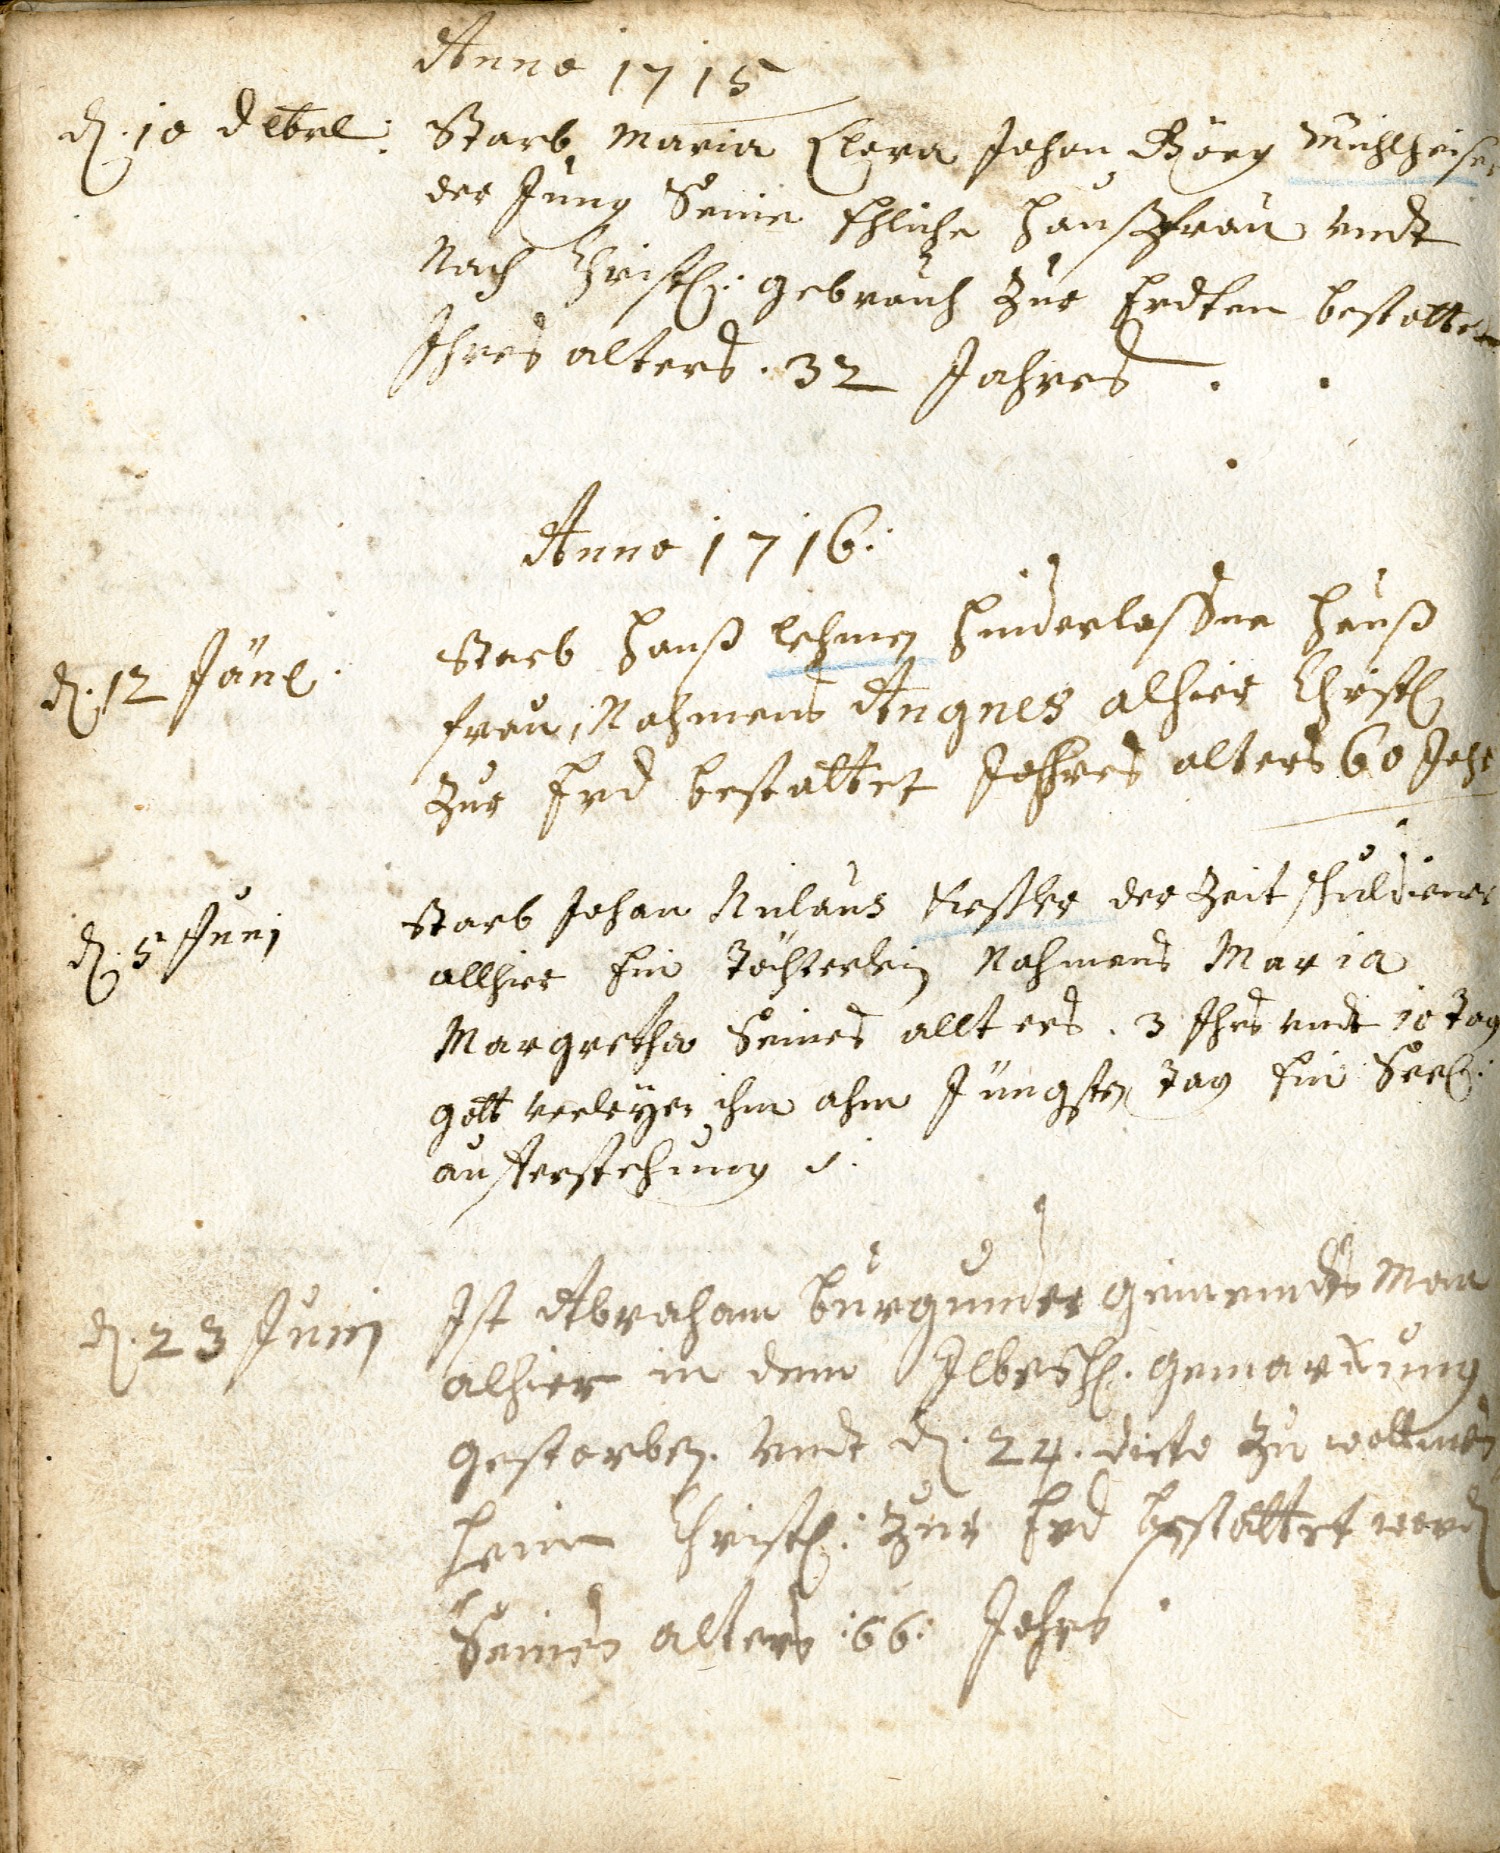 Anno 1715
d. 10 Xbrl: Starb Maria Clara Johan Görg Mühlheiser
der Jung Seine Ehliche haußfrau undt
Nach Christl: gebrauch Zur Erdten bestattet
Ihres alters . 32 Jahres . .
Anno 1716:
d. 12 Jäne. Starb Hanß lehmen hinderlassene hauß
frau, Nahmens Angnes alhier Christl
Zur Erd bestättet Ihres alters 60 Jahr
d. 5 Juni Starb Johan Niclaus Kessler der Zeit schuldiener
allhier Ein döchterlein Nahmens Maria
Margretha Seines allters . 3 Jhrs undt 10 tag
gott verleyhe ihm ahm Jüngsten tag Ein Seel:
aufferstehung
d. 23 Juni Ist Abraham burgunder gemeindts Man
alhier in dem Ilbesh. gemarckung
gestorben. undt d. 24. dito Zu
heim Christl: Zur Erd bestattet word
Seines alters :66: Jahrs